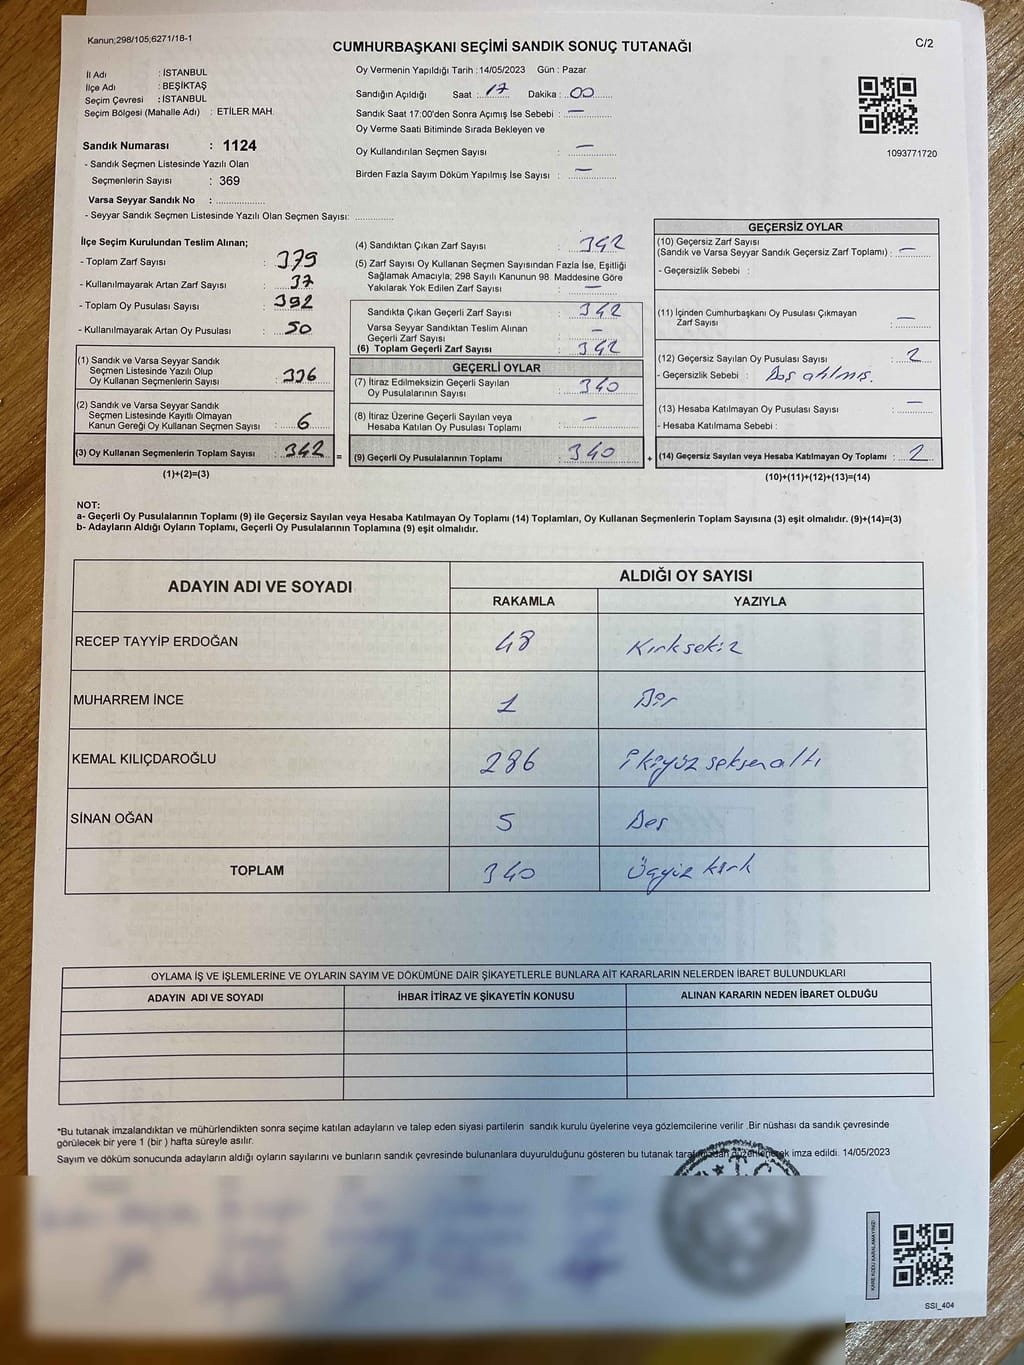 Kanun;298/105;6271/18-1
CUMHURBAŞKANI SEÇİMİ SANDIK SONUÇ TUTANAĞI
C/2
İl Adı : İSTANBUL
İlçe Adı : BEŞİKTAŞ
Seçim Çevresi : İSTANBUL
Seçim Bölgesi (Mahalle Adı) : ETİLER MAH.
Sandık Numarası : 1124
- Sandık Seçmen Listesinde Yazılı Olan
Seçmenlerin Sayısı : 369
Varsa Seyyar Sandık No : ....................
- Seyyar Sandık Seçmen Listesinde Yazılı Olan Seçmen Sayısı: ...............
Oy Vermenin Yapıldığı Tarih : 14/05/2023 Gün : Pazar
Sandığın Açıldığı Saat : 17 Dakika : 00
Sandık Saat 17:00'den Sonra Açımış İse Sebebi : —
Oy Verme Saati Bitiminde Sırada Bekleyen ve
Oy Kullandırılan Seçmen Sayısı : —
Birden Fazla Sayım Döküm Yapılmış İse Sayısı : —
1093771720
İlçe Seçim Kurulundan Teslim Alınan;
- Toplam Zarf Sayısı : 379
- Kullanılmayarak Artan Zarf Sayısı : 37
- Toplam Oy Pusulası Sayısı : 392
- Kullanılmayarak Artan Oy Pusulası : 50
(1) Sandık ve Varsa Seyyar Sandık
Seçmen Listesinde Yazılı Olup
Oy Kullanan Seçmenlerin Sayısı : 336
(2) Sandık ve Varsa Seyyar Sandık
Seçmen Listesinde Kayıtlı Olmayan
Kanun Gereği Oy Kullanan Seçmen Sayısı : 6
(3) Oy Kullanan Seçmenlerin Toplam Sayısı : 342 =
(1)+(2)=(3)
(4) Sandıktan Çıkan Zarf Sayısı : 342
(5) Zarf Sayısı Oy Kullanan Seçmen Sayısından Fazla İse, Eşitliği
Sağlamak Amacıyla; 298 Sayılı Kanunun 98. Maddesine Göre
Yakılarak Yok Edilen Zarf Sayısı : —
Sandıkta Çıkan Geçerli Zarf Sayısı : 342
Varsa Seyyar Sandıktan Teslim Alınan
Geçerli Zarf Sayısı : —
(6) Toplam Geçerli Zarf Sayısı : 342
GEÇERLİ OYLAR
(7) İtiraz Edilmeksizin Geçerli Sayılan
Oy Pusulalarının Sayısı : 340
(8) İtiraz Üzerine Geçerli Sayılan veya
Hesaba Katılan Oy Pusulası Toplamı : —
(9) Geçerli Oy Pusulalarının Toplamı : 340 +
GEÇERSİZ OYLAR
(10) Geçersiz Zarf Sayısı
(Sandık ve Varsa Seyyar Sandık Geçersiz Zarf Toplamı) : —
- Geçersizlik Sebebi :
(11) İçinden Cumhurbaşkanı Oy Pusulası Çıkmayan
Zarf Sayısı : —
(12) Geçersiz Sayılan Oy Pusulası Sayısı : 2
- Geçersizlik Sebebi : Boş atılmış.
(13) Hesaba Katılmayan Oy Pusulası Sayısı : —
- Hesaba Katılmama Sebebi :
(14) Geçersiz Sayılan veya Hesaba Katılmayan Oy Toplamı : 2
(10)+(11)+(12)+(13)=(14)
NOT:
a- Geçerli Oy Pusulalarının Toplamı (9) ile Geçersiz Sayılan veya Hesaba Katılmayan Oy Toplamı (14) Toplamları, Oy Kullanan Seçmenlerin Toplam Sayısına (3) eşit olmalıdır. (9)+(14)=(3)
b- Adayların Aldığı Oyların Toplamı, Geçerli Oy Pusulalarının Toplamına (9) eşit olmalıdır.
ADAYIN ADI VE SOYADI ALDIĞI OY SAYISI
RAKAMLA YAZIYLA
RECEP TAYYİP ERDOĞAN 48 Kırksekiz
MUHARREM İNCE 1 Bir
KEMAL KILIÇDAROĞLU 286 ikiyüz seksen altı
SİNAN OĞAN 5 Beş
TOPLAM 340 Üçyüz kırk
OYLAMA İŞ VE İŞLEMLERİNE VE OYLARIN SAYIM VE DÖKÜMÜNE DAİR ŞİKAYETLERLE BUNLARA AİT KARARLARIN NELERDEN İBARET BULUNDUKLARI
ADAYIN ADI VE SOYADI İHBAR İTİRAZ VE ŞİKAYETİN KONUSU ALINAN KARARIN NEDEN İBARET OLDUĞU
*Bu tutanak imzalandıktan ve mühürlendikten sonra seçime katılan adayların ve talep eden siyasi partilerin sandık kurulu üyelerine veya gözlemcilerine verilir .Bir nüshası da sandık çevresinde
görülecek bir yere 1 (bir ) hafta süreyle asılır.
Sayım ve döküm sonucunda adayların aldığı oyların sayılarını ve bunların sandık çevresinde bulunanlara duyurulduğunu gösteren bu tutanak tarafımızdan düzenlenerek imza edildi. 14/05/2023
KARE KODU KARALAMAYINIZ!
SSI_404